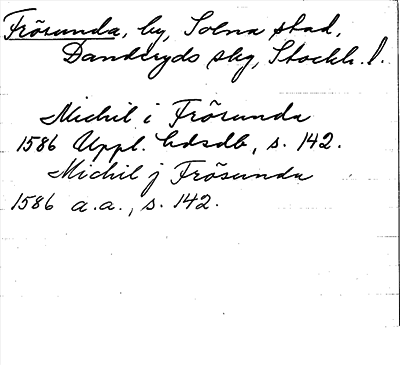 Frösunda, by, Solna stad,
Danderyds skg, Stockh. l.
Michil i Frösunda
1586 Uppl. hdsdb, s. 142.
Michil j Frösunda
1586 a.a., s. 142.